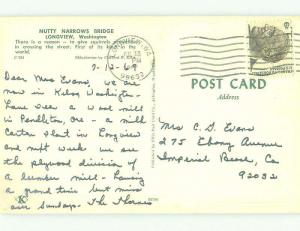 NUTTY NARROWS BRIDGE
LONGVIEW, Washington
There is a reason - to give squirrels
in crossing the street. First of its kind in the
world.
JUL 13
PM
98632
7-12-69
Dear Mrs Evans, we are
now in Kelso, Washington-
have seen a wool mill
in Pendleton, Ore - a mill
Carter plant in Longview
and next week we see
the plywood division of
a lumber mill - having
a grand time but miss
our Sundays - The Thornes
POST CARD
Address
Mrs C. G. Evans
275 Ebony Avenue
Imperial Beach, Ca
92032